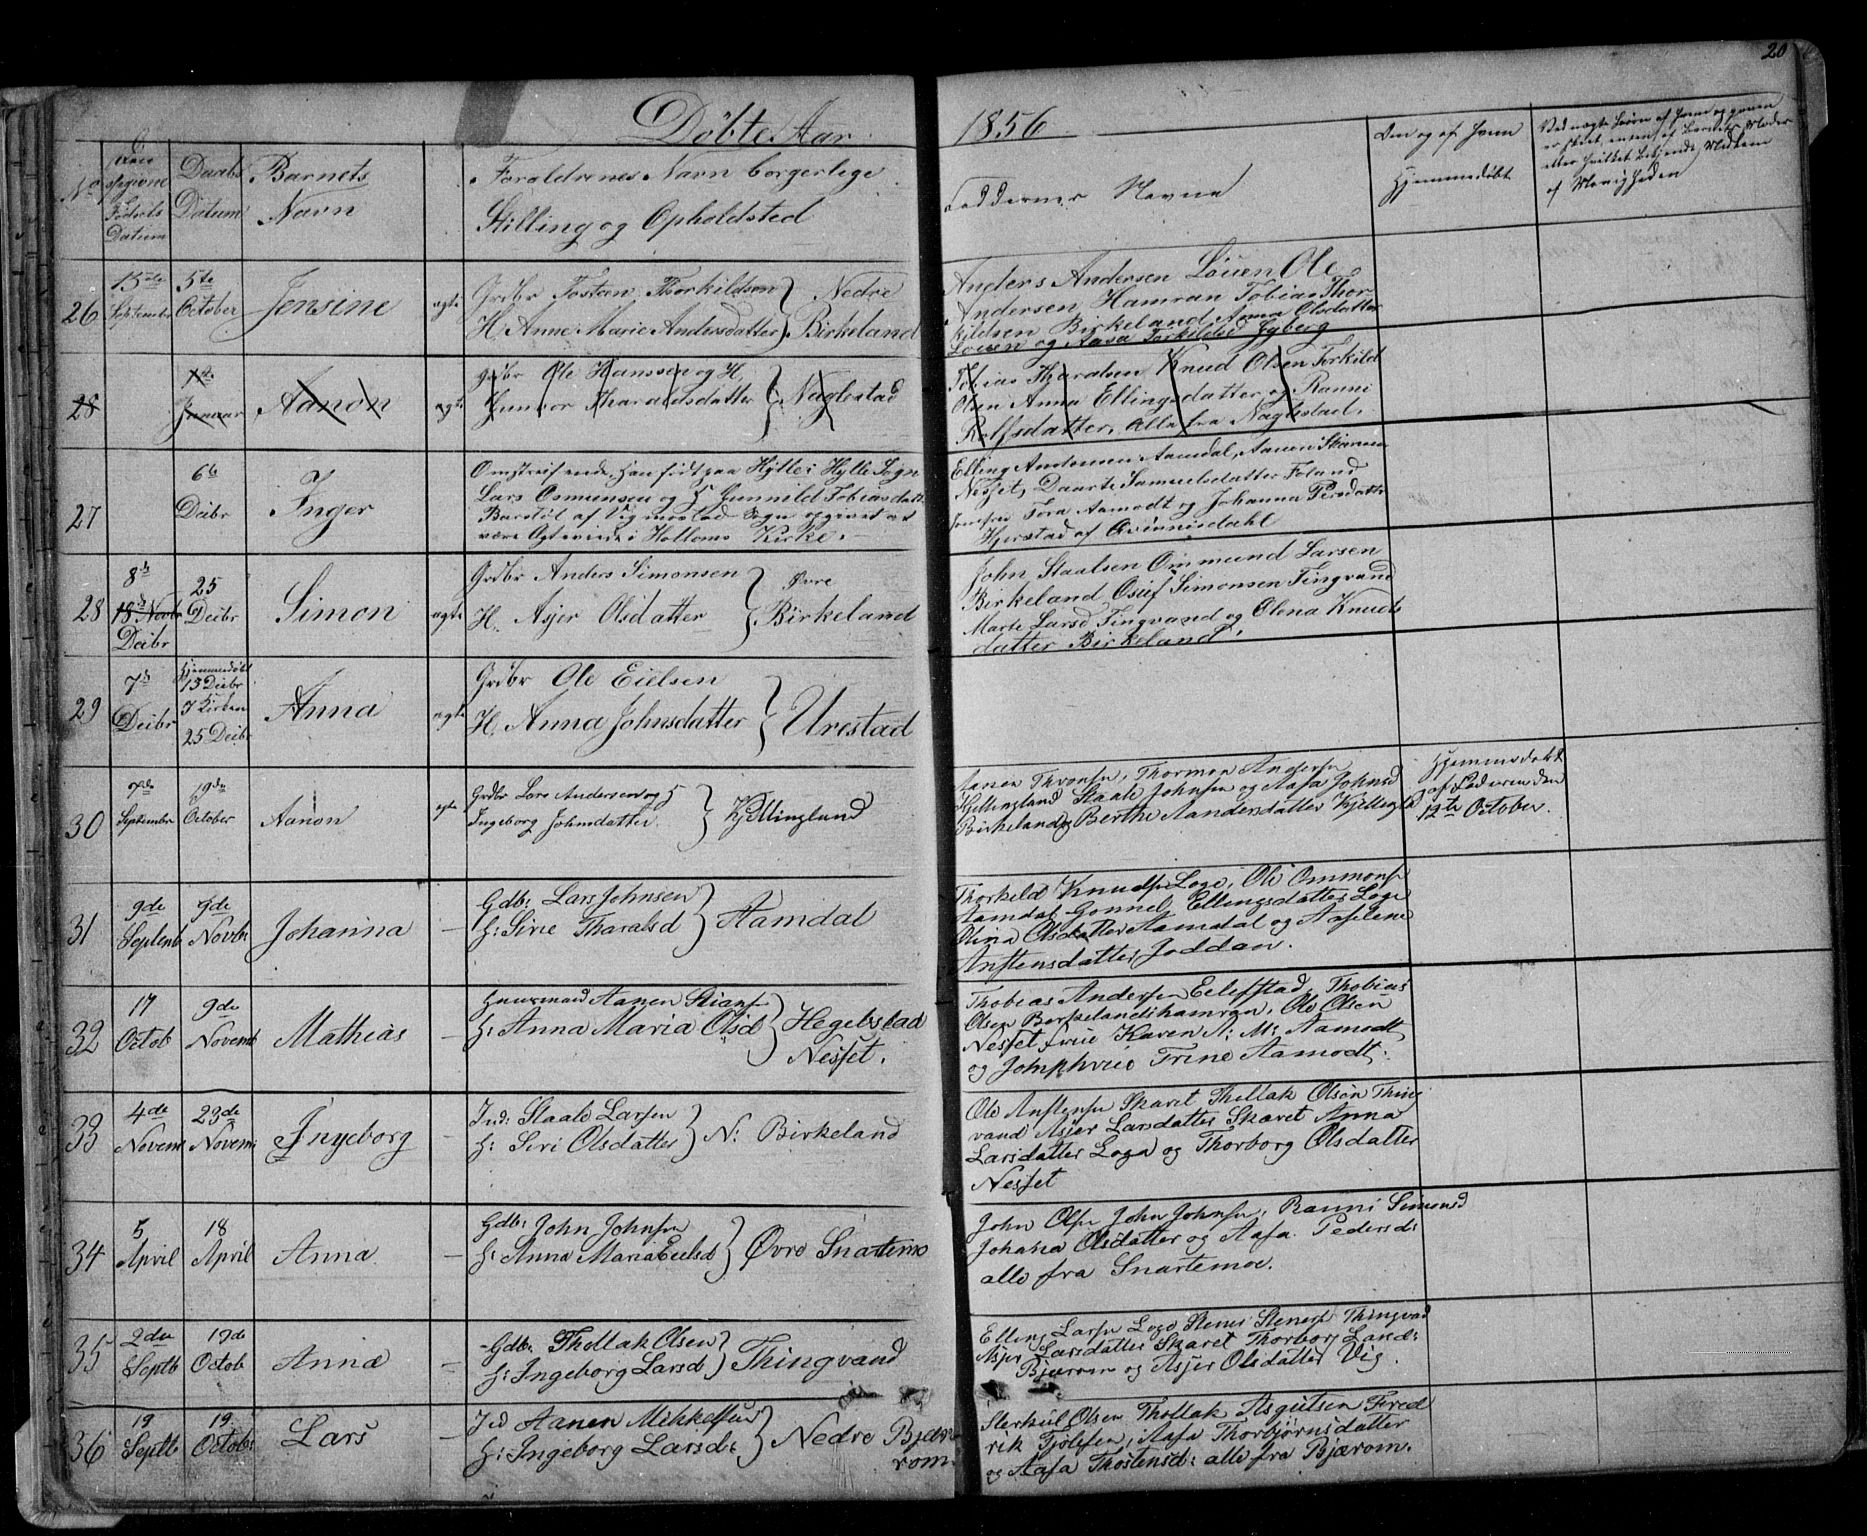 20
Døbte Aar 1856
No Fødsels Datum
Daabs Datum
Barnets Navn
Foraldrenes Navn borgerlige
Stilling og Opholdsted
Faddernes Navne
Om og af hvem
Hjemmedøbt
af Menigheden
26
September
5te October
Jensine
ægte
Grdbr Tosten Thorkildsen
H. Anne Marie Andersdatter
Nedre Birkeland
Anders Andersen Løuen Ole
Andersen Hamran Tobias Thor-
kildsen Birkeland Anna Olsdatter
Løuen og Aasa Torkildsd Jyberg
28
Januar
Aanon
ægte
Grdbr Ole Hanssen og H.
Gunvor Tharaldsdatter
Naglestad
Tobias Tharalsen Knud Olsen Torkild
Olsen Anna Ellingsdatter og Ranni
Rolfsdatter, alle fra Naglestad.
27
6te Decbr
Inger
Omstreifende, han født paa Hylle i Hylle Sogn
Lars Osmunsen og H Gunnild Tobiasdatt
Barstøl af Vigmostad Sogn opgivet at
være Ægteviede i Holloms Kirke.
Elling Andersen Aamdal, Aanen
Nesset, Daarte Samuelsdatter Foland
Jomfru Tora Aamodt og Johanna Persdatter
Hjerstad af Qvinnisdahl
28
8de
18de Novbr
Decbr
25 Decbr
Simon
ægte
Grdbr Anders Simonsen
H. Asjer Olsdatter
Øvre Birkeland
John Staalsen Ommund Larsen
Birkeland Osuf Simonsen Tingvand
Marte Larsd Tingvand og Olena Knuds
datter Birkeland.
29
7de Decbr
Hjemmedøbt
13 Decbr
I Kirken
25 Decbr
Anna
ægte
Grdbr Ole Eielsen
H. Anna Johnsdatter
Urestad
30
September
19de October
Aanon
ægte
Grdbr Lars Andersen og H
Ingeborg Johnsdatter.
Kjellingland
Aanen Thronsen, Thormon Andersen
Kjellingland Staale Johnsen og Aasa Johnsd
Birkeland og Berthe Aandersdatter
Hjemmedøbt
af Faderen den
12te October.
31
9de Septemb
9de Novbr
Johanna
Gdb: Lars Johnsen
H: Sirie Tharalsd
Aamdal
Thorkild Knudsen Loge, Ole Ommonsen
Aamdal Gonnel Ellingsdatter Loge
Olina Olsdatter Aamdal og Aaselene
Anstensdatter Joddan.
32
17 Octob
9de Novemb
Mathias
Huusmand Aanen Stians
H: Anna Maria Olsd
Hegelstad
Nesset.
Thobias Andersen Eilefstad, Thobias
Olsen Berkelandshamran, Ole Olsen
Nesset, Frue Karen A: M: Aamodt
og Jomphrue Trine Aamodt.
33
4de Novem
23de Novem:
Ingeborg
Ind: Staale Larsen
H: Siri Olsdatter
N: Birkeland
Ole Anstensen Skaret Thollak Olsen Thing
vand Asjer Larsdatter Skaret Anna
Larsdatter Loga og Thorborg Olsdatter
Nesset
34
5 April
18 April
Anna
Gdb: John Johnsen
H: Anna Maria Eielsd
Øvre Snartemo
John Olsen John Johnsen, Ranni Simonsd
Johana Olsdatter og Aasa Pedersd:
alle fra Snartemoe.
35
2den Septb
19de Octob
Anna
Gdb: Thollak Olsen
H: Ingeborg Larsd
Thingvand
Elling Larsen Loge Stener Stenersen Thingvand
Asjer Larsdatter Skaret Thorborg Lars:
Bjærom og Asjer Olsdatter Vig.
36
19 Septb
19 Octob:
Lars
Ind Aanen Mikkelsen
H: Ingeborg Larsd:
Nedre Bjær-
rom.
Sterkul Olsen Thollak Asgutsen Fred
rik Tjølsen, Aasa Thorbjørnsdatter
og Aasa Thostensd: alle fra Bjærom.